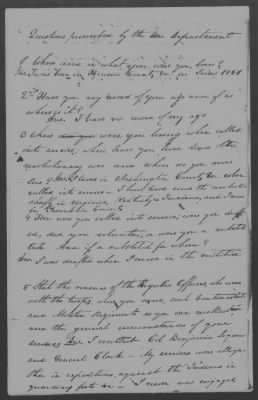 Questions prescribed by the War Department
1 Where and in what year were you born?
Ans I was born in County Va in 
2nd Have you any record of your age and if so
where is it?
Ans. I have no record of my age
3 Where were you living when called
into service, where have you lived since the
revolutionary war and where do you now
live? Ans I lived in Washington County Va when
called into service - I have lived since the revolution
in virginia, Kentucky & Indiana, and I now
in County
4 How were you called into service; were you draft
ed, did you volunteer, or were you a substi
tute. And if a substitute for whom?
Ans. I was drafted when I served in the militia
5 State the names of the Regular Officers, who were
with the troops, when you served, such Continental
and Militia Regiments as you can recollect
and the general circumstances of your
services Ans. I recollect Col Benjamin Logan
and General Clark - My services was altoge
ther in expeditions, against the Indians in
guarding forts &c - I never was engaged